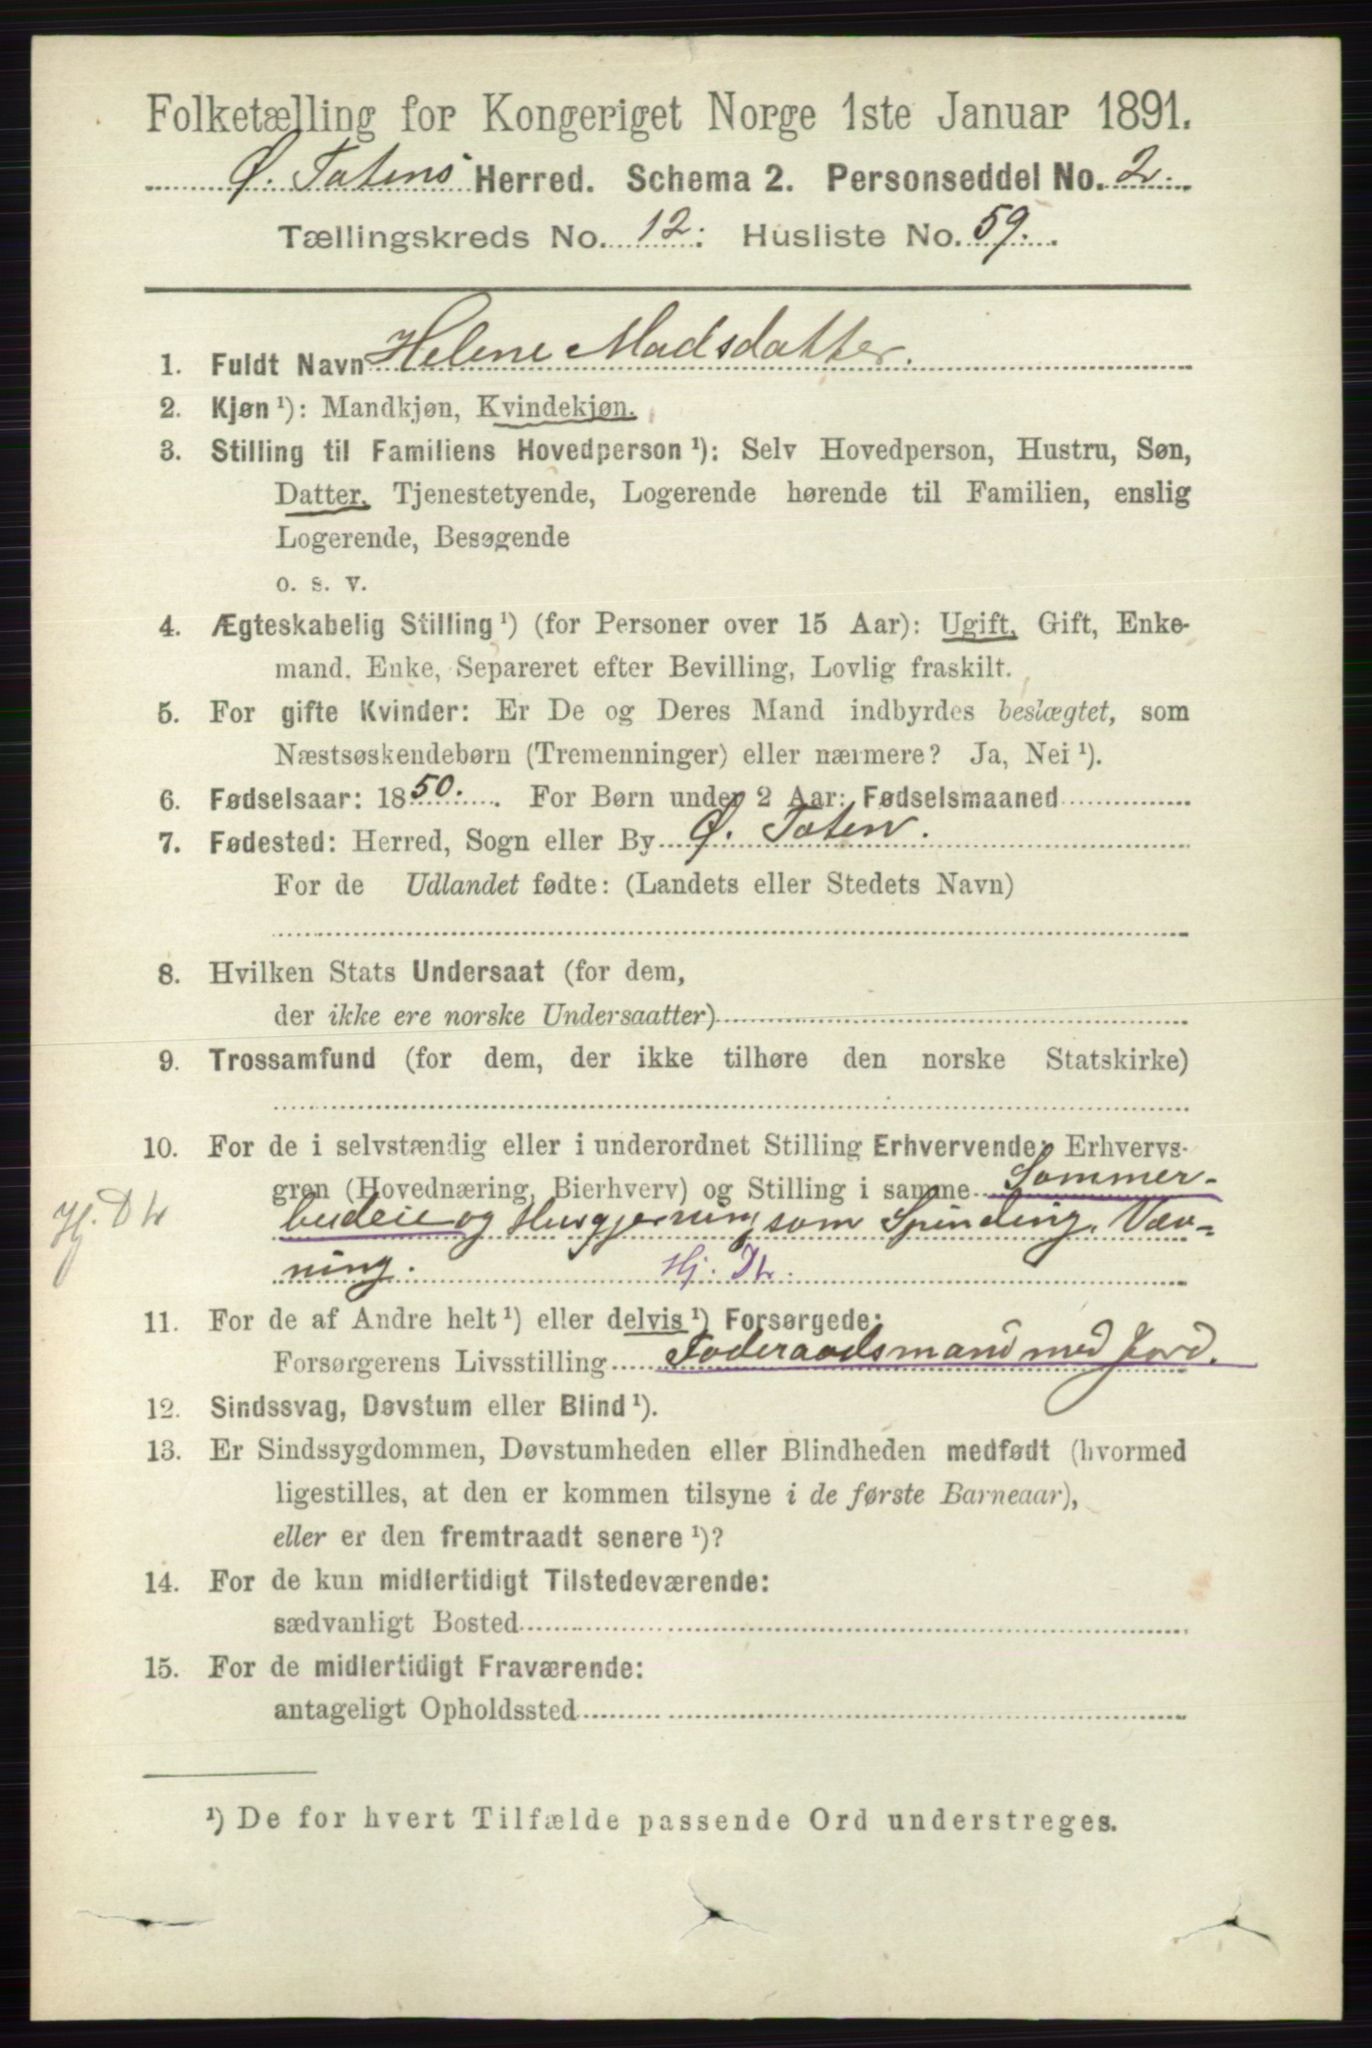 Folketælling for Kongeriget Norge 1ste Januar 1891.
Ø. Totens Herred. Schema 2. Personseddel No. 2.
Tællingskreds No. 12. Husliste No. 59.
1. Fuldt Navn Helene Madsdatter.
2. Kjøn ¹): Mandkjøn, Kvindekjøn.
3. Stilling til Familiens Hovedperson ¹): Selv Hovedperson, Hustru, Søn,
Datter, Tjenestetyende, Logerende hørende til Familien, enslig
Logerende, Besøgende
o. s. v.
4. Ægteskabelig Stilling ¹) (for Personer over 15 Aar): Ugift, Gift, Enke-
mand, Enke, Separeret efter Bevilling, Lovlig fraskilt.
5. For gifte Kvinder: Er De og Deres Mand indbyrdes beslægtet, som
Næstsøskendebørn (Tremenninger) eller nærmere? Ja, Nei ¹).
6. Fødselsaar: 1850. For Børn under 2 Aar: Fødselsmaaned
7. Fødested: Herred, Sogn eller By Ø. Toten.
For de Udlandet fødte: (Landets eller Stedets Navn)
8. Hvilken Stats Undersaat (for dem,
der ikke ere norske Undersaatter)
9. Trossamfund (for dem, der ikke tilhøre den norske Statskirke)
10. For de i selvstændig eller i underordnet Stilling Erhvervende: Erhvervs-
gren (Hovednæring, Bierhverv) og Stilling i samme Sommer-
budeie og Husgjerning, som Spinding, Væv-
ning. Hj.
11. For de af Andre helt ¹) eller delvis ¹) Forsørgede:
Forsørgerens Livsstilling Foderaadsmand med Jord.
12. Sindssvag, Døvstum eller Blind ¹).
13. Er Sindssygdommen, Døvstumheden eller Blindheden medfødt (hvormed
ligestilles, at den er kommen tilsyne i de første Barneaar),
eller er den fremtraadt senere ¹)?
14. For de kun midlertidigt Tilstedeværende:
sædvanligt Bosted
15. For de midlertidigt Fraværende:
antageligt Opholdssted
¹) De for hvert Tilfælde passende Ord understreges.